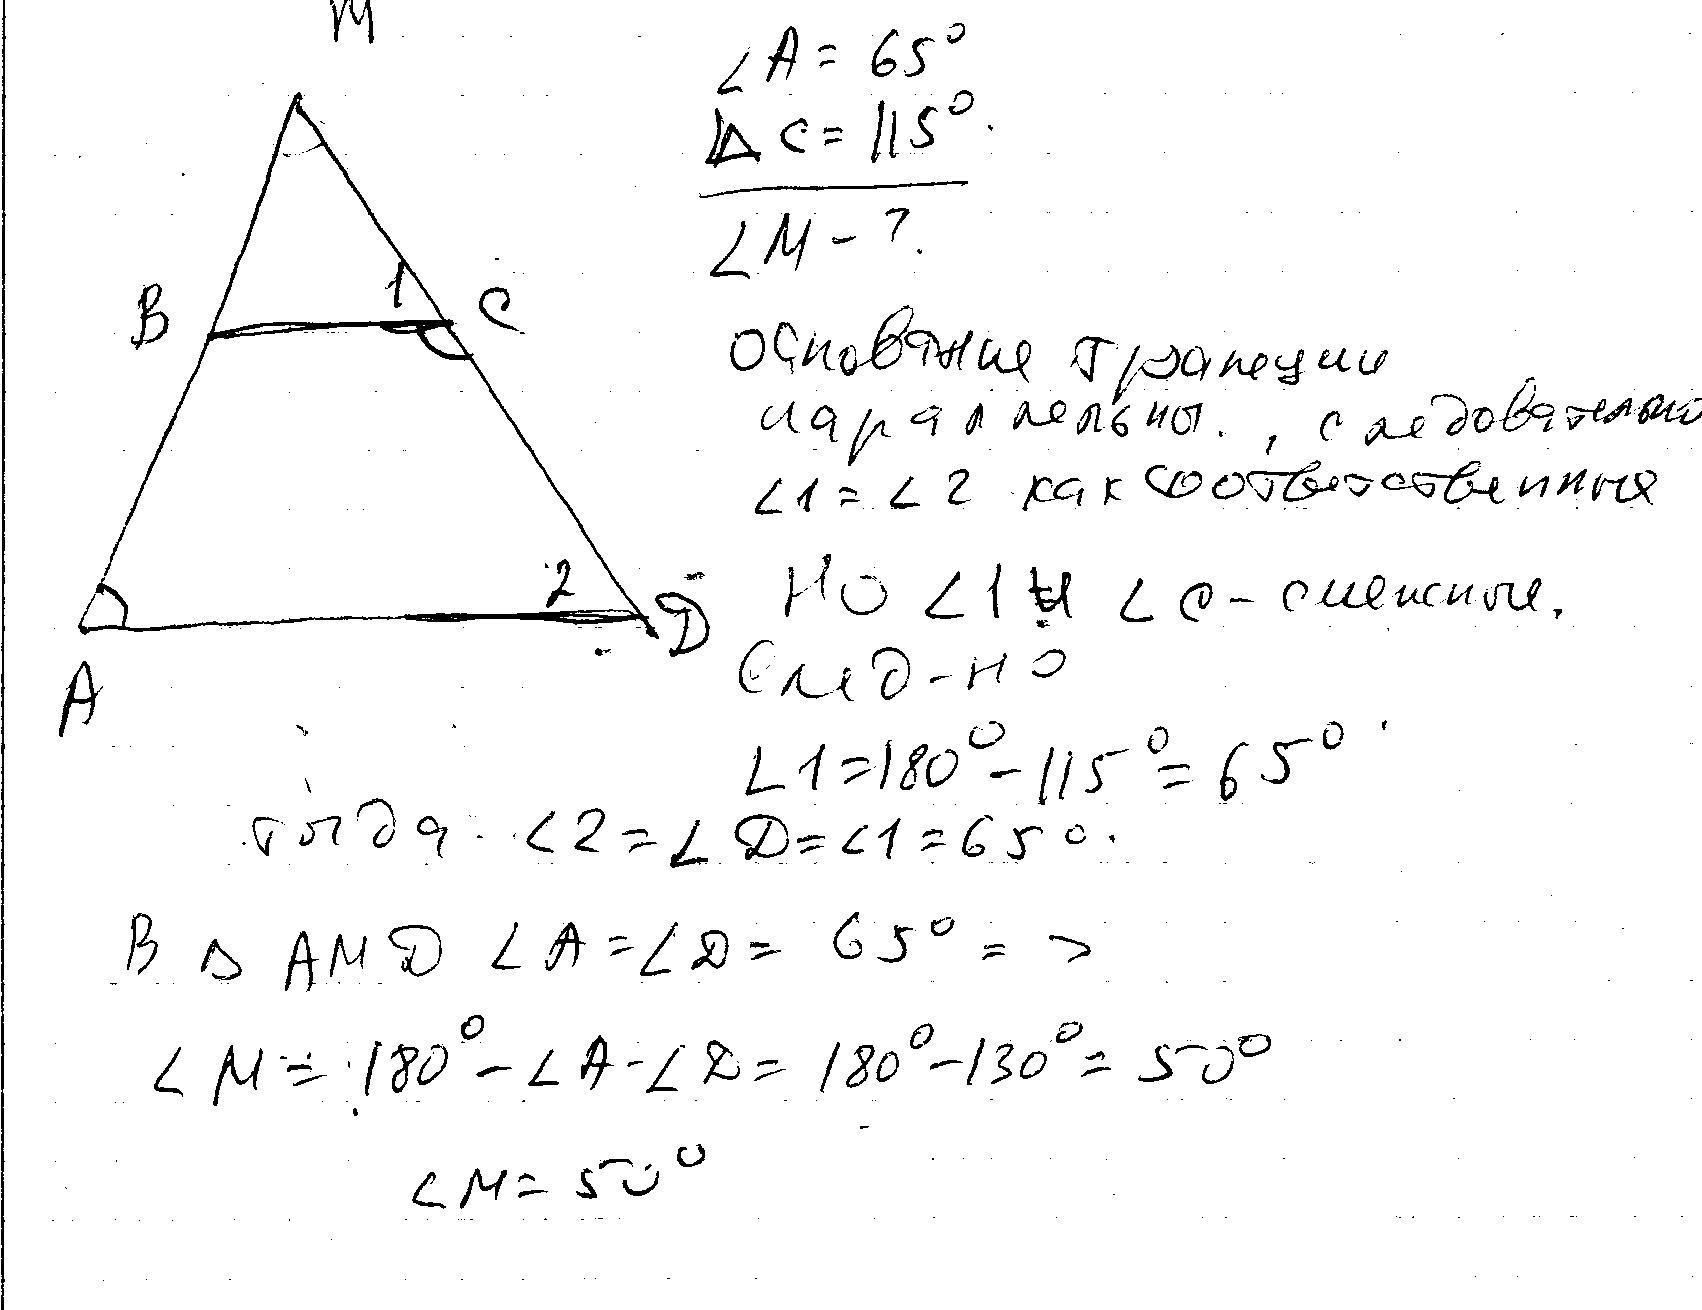 M
∠A = 65°
∠C = 115°.
∠M - ?.
B
1
C
2
A
D
основание трапеции
параллельны., следовательно
∠1 = ∠2 как соответственные
НО ∠1 и ∠C - смежные.
След-но
∠1 = 180° - 115° = 65°
тогда ∠2 = ∠D = ∠1 = 65°.
В △ AMD ∠A = ∠D = 65° =>
∠M = 180° - ∠A - ∠D = 180° - 130° = 50°
∠M = 50°